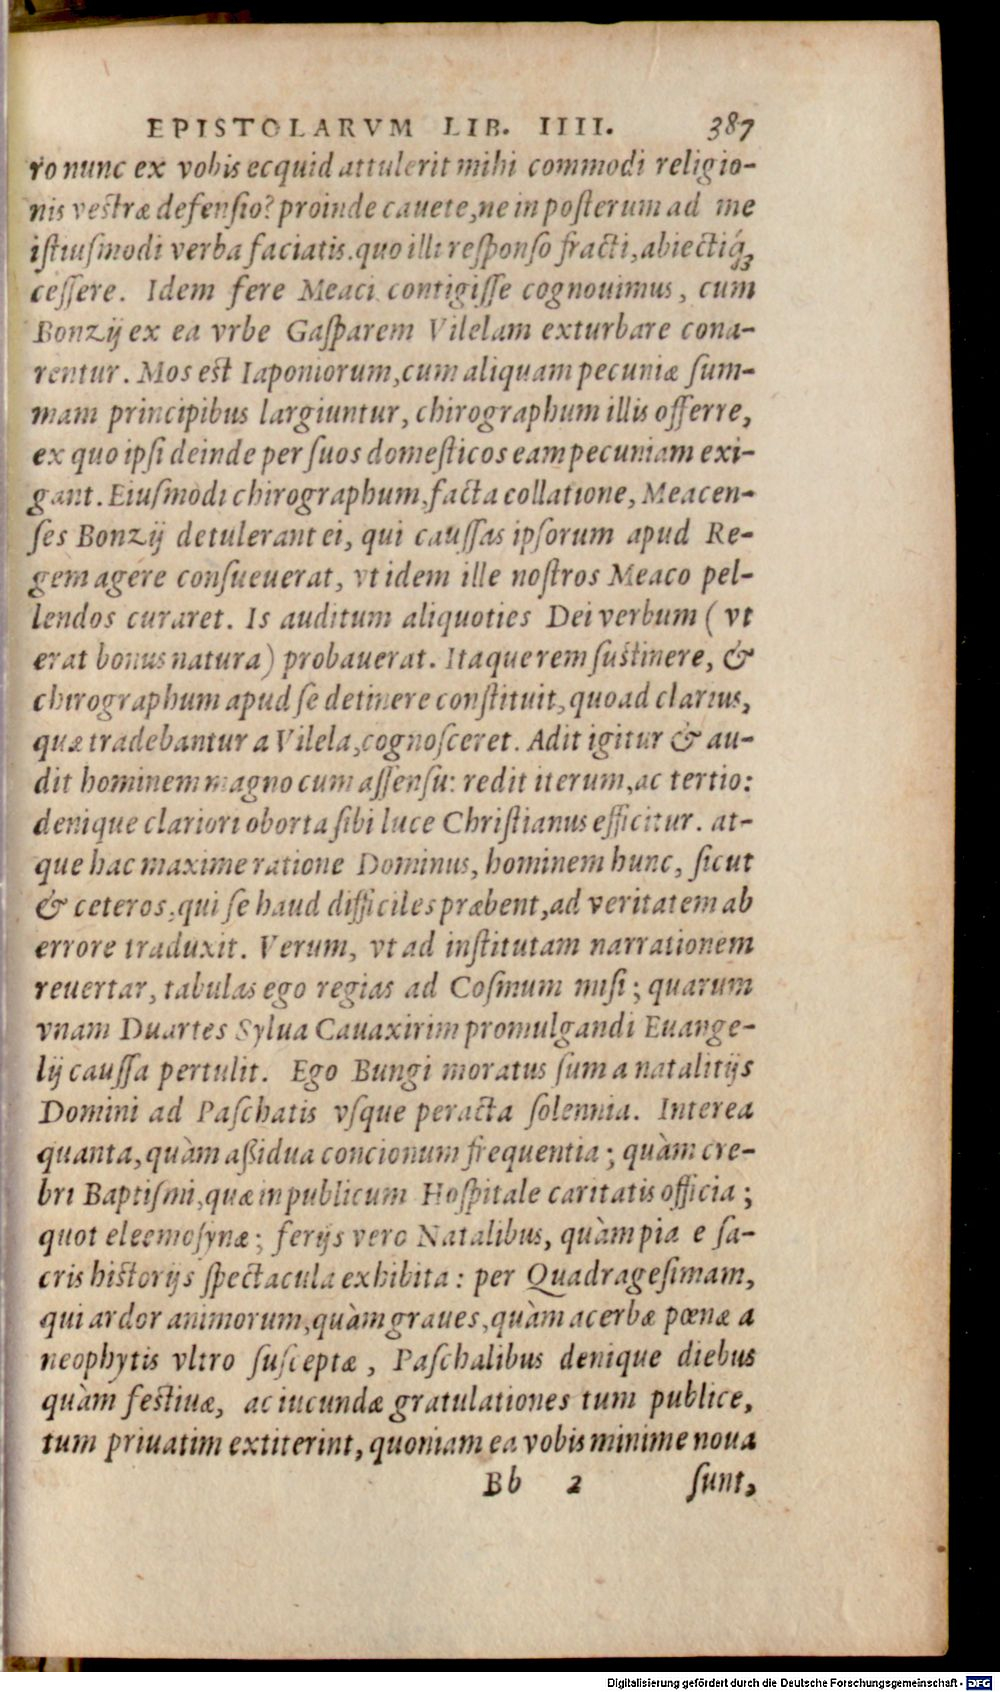 EPISTOLARVM LIB. IIII. 387
ro nunc ex vobis ecquid attulerit mihi commodi religio-
nis vestræ defensio? proinde cauete, ne in posterum ad me
istiusmodi verba faciatis. quo illi responso fracti, abiectiq́;
cessere. Idem fere Meaci contigisse cognouimus, cum
Bonzij ex ea vrbe Gasparem Vilelam exturbare cona-
rentur. Mos est Iaponiorum, cum aliquam pecuniæ sum-
mam principibus largiuntur, chirographum illis offerre,
ex quo ipsi deinde per suos domesticos eam pecuniam exi-
gant. Eiusmodi chirographum, facta collatione, Meacen-
ses Bonzij detulerant ei, qui caussas ipsorum apud Re-
gem agere consueuerat, vt idem ille nostros Meaco pel-
lendos curaret. Is auditum aliquoties Dei verbum (vt
erat bonus natura) probauerat. Itaque rem sustinere, &
chirographum apud se detinere constituit, quoad clarius,
quæ tradebantur a Vilela, cognosceret. Adit igitur & au-
dit hominem magno cum assensu: redit iterum, ac tertio:
denique clariori oborta sibi luce Christianus efficitur. at-
que hac maxime ratione Dominus, hominem hunc, sicut
& ceteros, qui se haud difficiles præbent, ad veritatem ab
errore traduxit. Verum, vt ad institutam narrationem
reuertar, tabulas ego regias ad Cosmum misi; quarum
vnam Duartes Sylua Cauaxirim promulgandi Euange-
lij caussa pertulit. Ego Bungi moratus sum a natalitijs
Domini ad Paschatis vsque peracta solennia. Interea
quanta, quàm aßidua concionum frequentia; quàm cre-
bri Baptismi, quæ in publicum Hospitale caritatis officia;
quot eleemosynæ; ferijs vero Natalibus, quàm pia e sa-
cris historijs spectacula exhibita: per Quadragesimam,
qui ardor animorum, quàm graues, quàm acerbæ pœnæ a
neophytis vltro susceptæ, Paschalibus denique diebus
quàm festiuæ, ac iucundæ gratulationes tum publice,
tum priuatim extiterint, quoniam ea vobis minime noua
Bb 2 sunt,
Digitalisierung gefördert durch die Deutsche Forschungsgemeinschaft - DFG